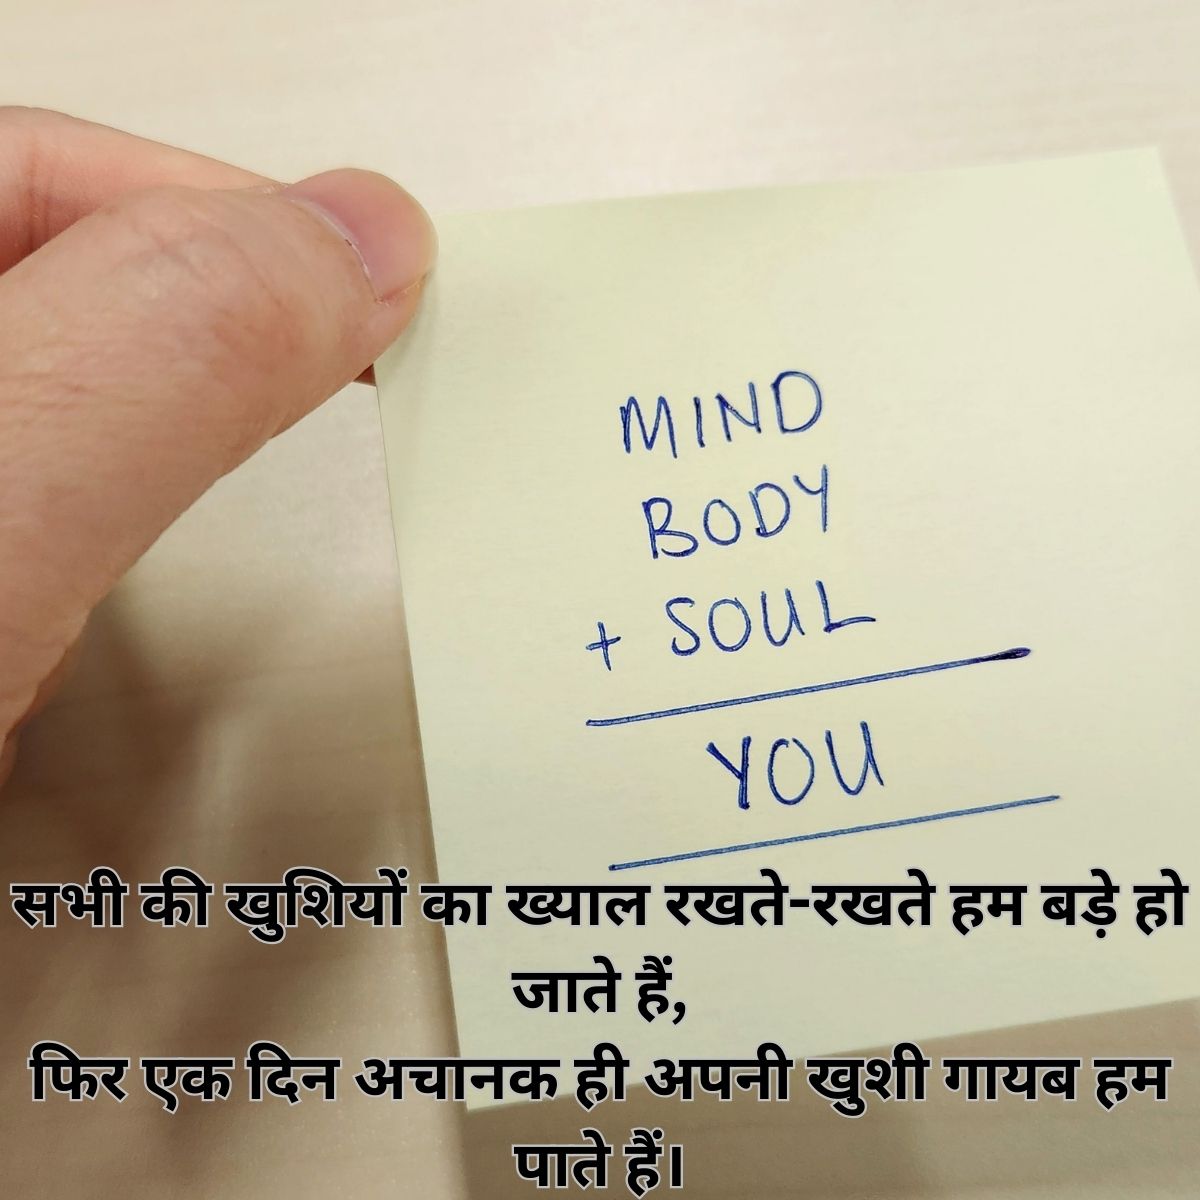 MIND
BODY
+ SOUL
YOU
सभी की खुशियों का ख्याल रखते-रखते हम बड़े हो
जाते हैं,
फिर एक दिन अचानक ही अपनी खुशी गायब हम
पाते हैं।